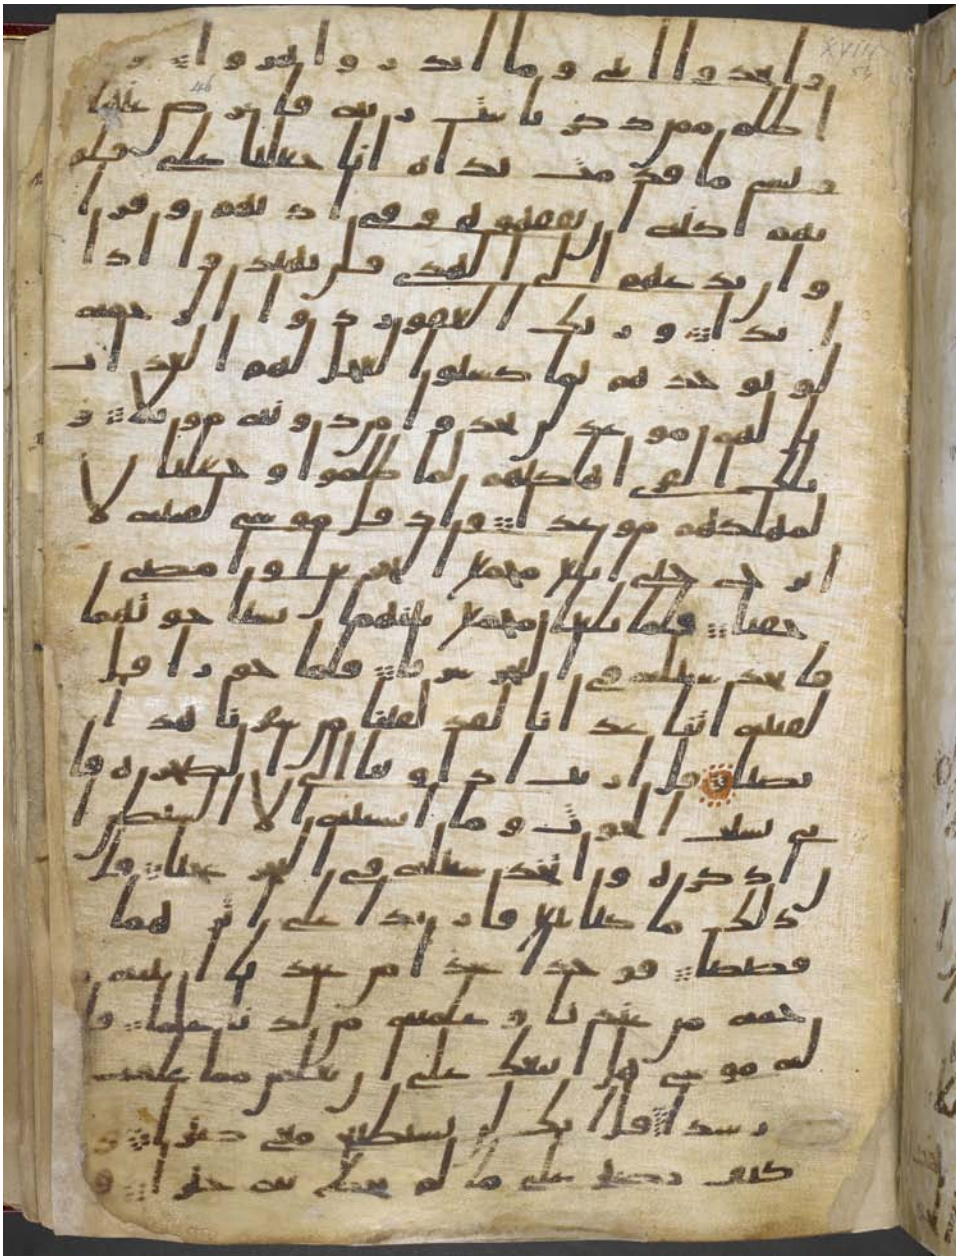 XVIII
54
46
واتخذوا ايتى وما انذروا هزوا ومن
اظلم ممن ذكر بايت ربه فاعرض عنها
ونسى ما قدمت يداه انا جعلنا على قلو
بهم اكنه ان يفقهوه وفى اذنهم وقرا
وان تدعهم الى الهدى فلن يهتدوا اذا
ابدا وربك الغفور ذو الرحمه
لو يوخذهم بما كسبوا لعجل لهم العذاب
بل لهم موعد لن يجدوا من دونه مويلا و
تلك القرى اهلكنهم لما ظلموا وجعلنا
لمهلكهم موعدا واذ قل موسى لفتيه لا
ابرح حتى ابلغ مجمع البحرين او امضى
حقبا فلما بلغا مجمع بينهما نسيا حوتهما
فاتخذ سبيله فى البحر سربا فلما جوزا قل
لفتيه اتنا غدانا لقد لقينا من سفرنا هذا
نصبا قل اريت اذ اوينا الى الصخره فا
نى نسيت الحوت وما انسنيه الا الشيطن ا
ن اذكره واتخذ سبيله فى البحر عجبا قل
ذلك ما كنا نبغ فارتدا على اثرهما
قصصا فوجدا عبدا من عبدنا اتينه ر
حمه من عندنا وعلمنه من لدنا علما قل
له موسى هل اتبعك على ان تعلمن مما علمت
رشدا قل انك لن تستطيع معى صبرا و
كيف تصبر على ما لم تحط به خبرا